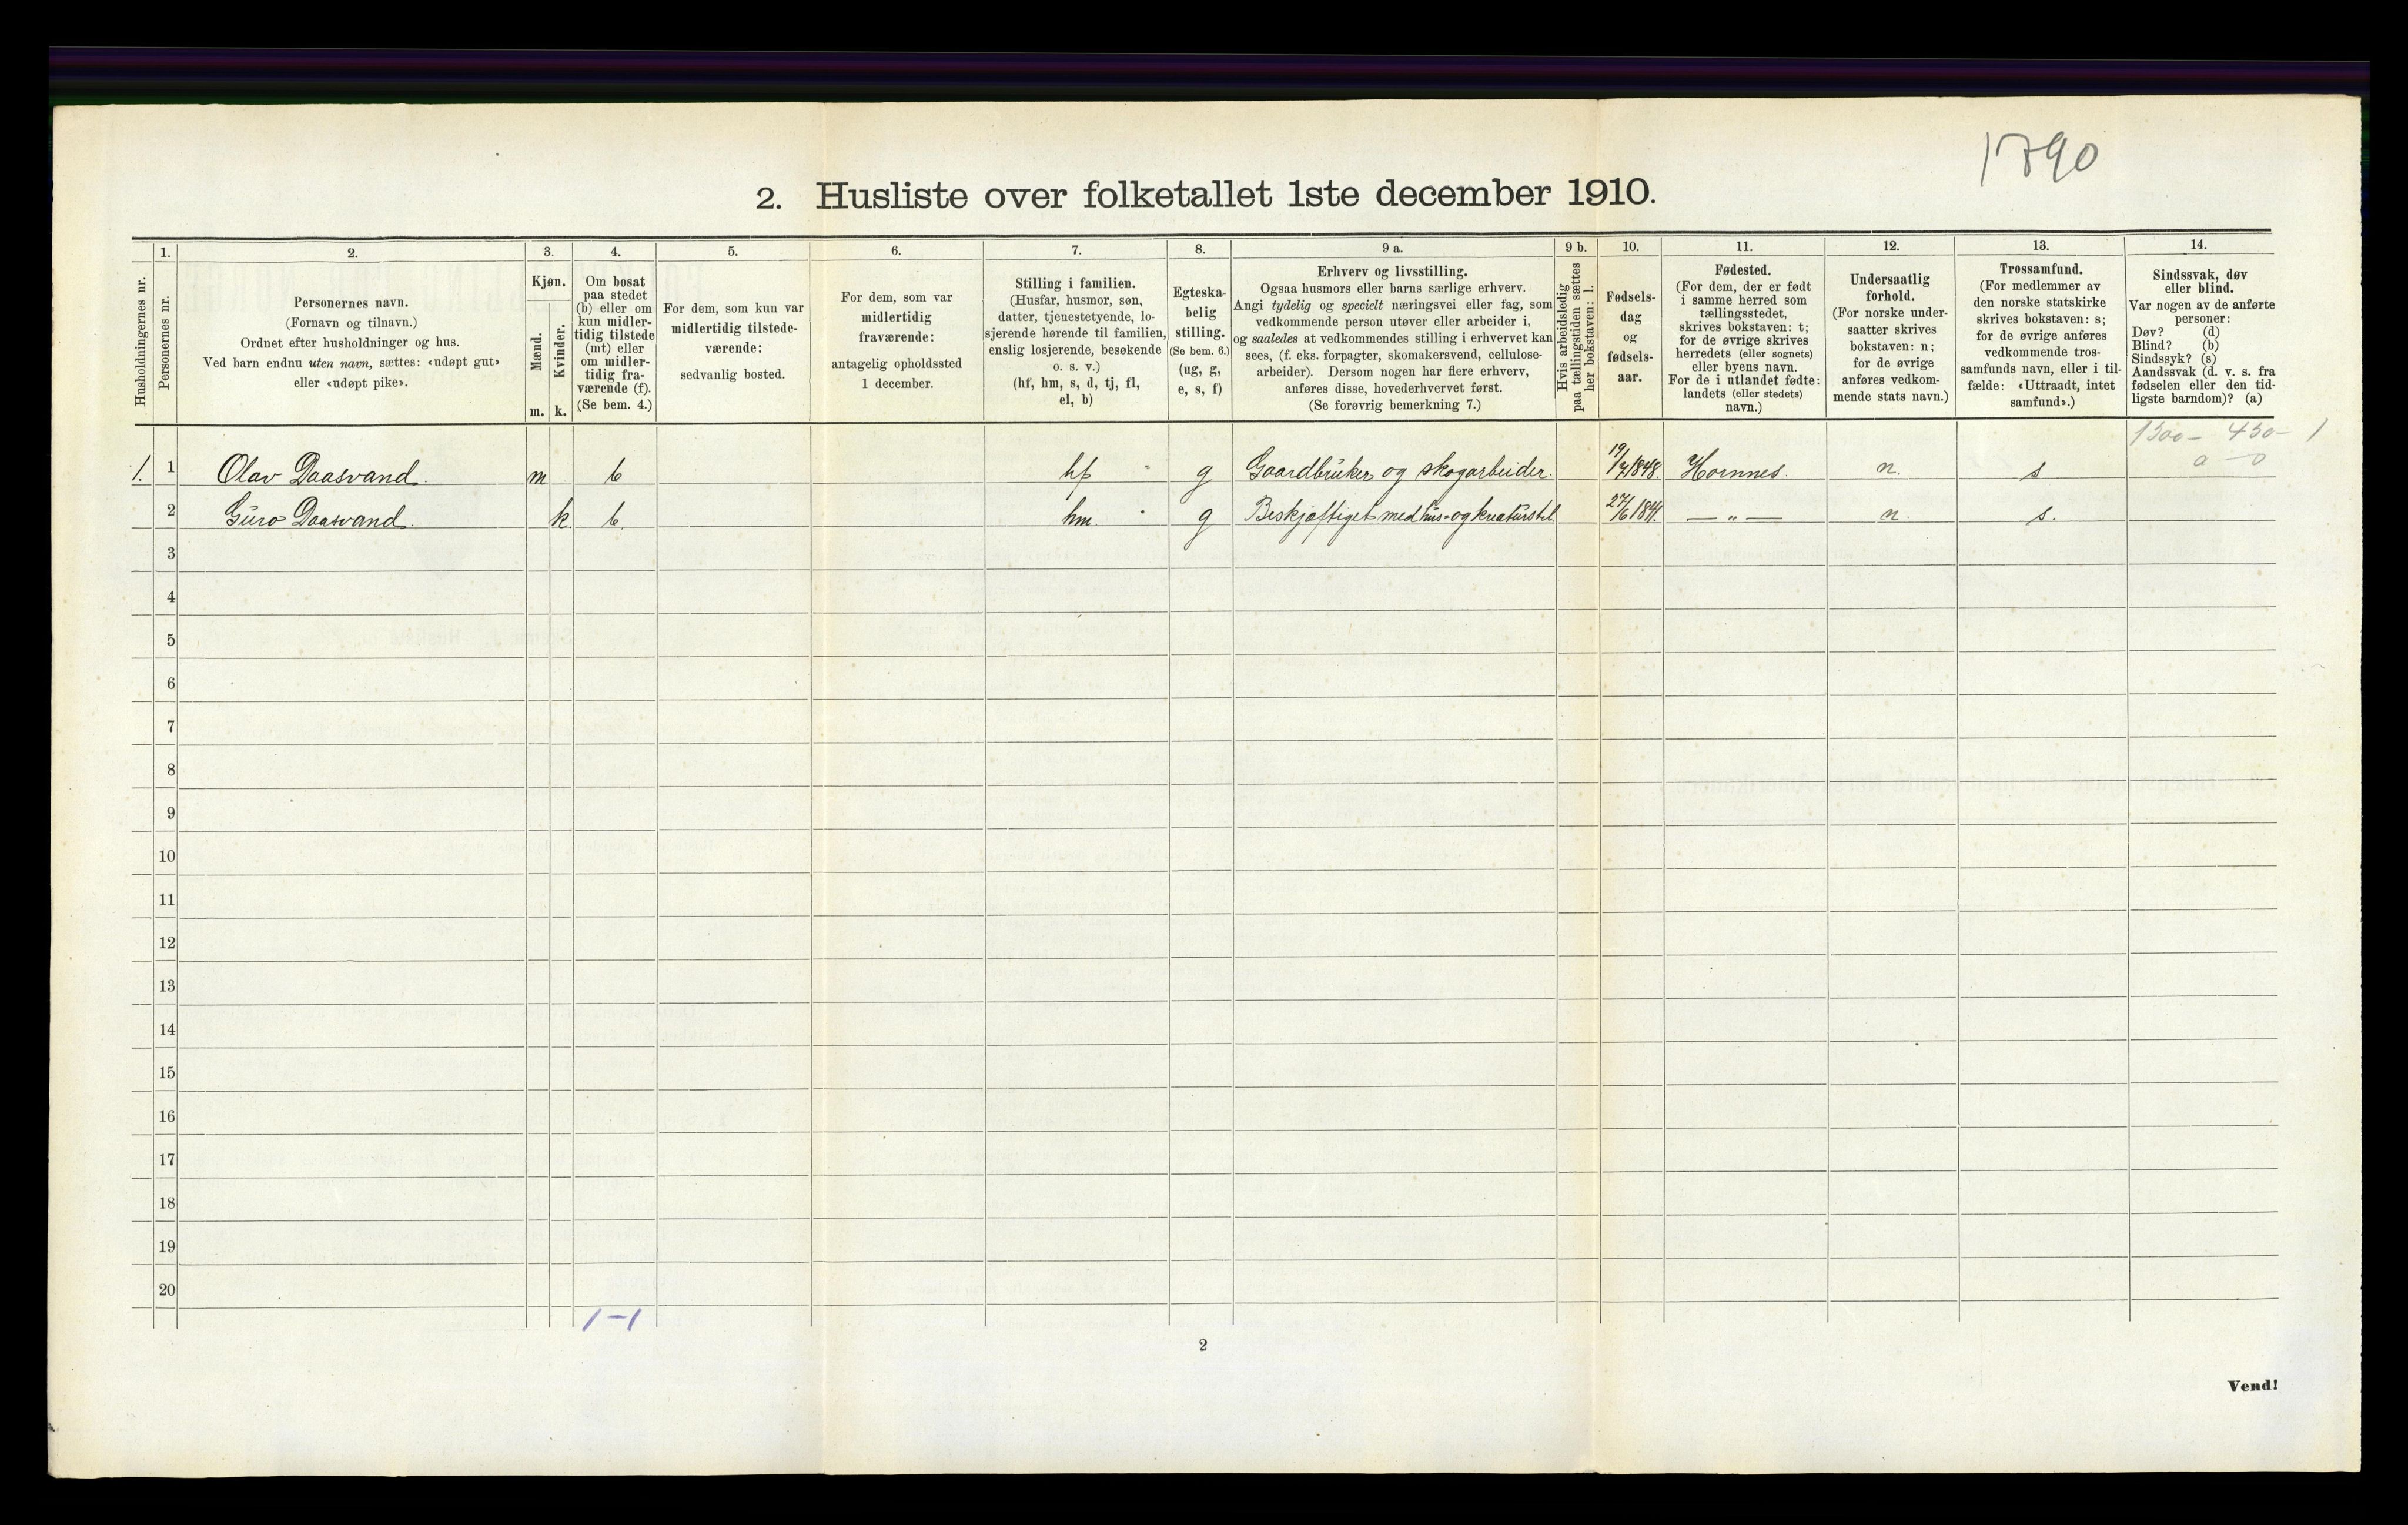 1790
2. Husliste over folketallet 1ste december 1910.
Husholdningernes nr.
1.
Personernes nr.
2.
Personernes navn.
(Fornavn og tilnavn.)
Ordnet efter husholdninger og hus.
Ved barn endnu uten navn, sættes: «udøpt gut»
eller «udøpt pike».
3.
Kjøn.
Mænd.
Kvinder.
m. k.
4.
Om bosat
paa stedet
(b) eller om
kun midler-
tidig tilstede
(mt) eller
om midler-
tidig fra-
værende (f).
(Se bem. 4.)
5.
For dem, som kun var
midlertidig tilstede-
værende:
sedvanlig bosted.
6.
For dem, som var
midlertidig
fraværende:
antagelig opholdssted
1 december.
7.
Stilling i familien.
(Husfar, husmor, søn,
datter, tjenestetyende, lo-
sjerende hørende til familien,
enslig losjerende, besøkende
o. s. v.)
(hf, hm, s, d, tj, fl,
el, b)
8.
Egteska-
belig
stilling.
(Se bem. 6.)
(ug, g,
e, s, f)
9 a.
Erhverv og livsstilling.
Ogsaa husmors eller barns særlige erhverv.
Angi tydelig og specielt næringsvei eller fag, som
vedkommende person utøver eller arbeider i,
og saaledes at vedkommendes stilling i erhvervet kan
sees, (f. eks. forpagter, skomakersvend, cellulose-
arbeider). Dersom nogen har flere erhverv,
anføres disse, hovederhvervet først.
(Se forøvrig bemerkning 7.)
9 b.
Hvis arbeidsledig
paa tællingstiden sættes
her bokstaven: l.
10.
Fødsels-
dag
og
fødsels-
aar.
11.
Fødested.
(For dem, der er født
i samme herred som
tællingsstedet,
skrives bokstaven: t;
for de øvrige skrives
herredets (eller sognets)
eller byens navn.
For de i utlandet fødte:
landets (eller stedets)
navn.)
12.
Undersaatlig
forhold.
(For norske under-
saatter skrives
bokstaven: n;
for de øvrige
anføres vedkom-
mende stats navn.)
13.
Trossamfund.
(For medlemmer av
den norske statskirke
skrives bokstaven: s;
for de øvrige anføres
vedkommende tros-
samfunds navn, eller i til-
fælde: «Uttraadt, intet
samfund».)
14.
Sindssvak, døv
eller blind.
Var nogen av de anførte
personer:
Døv? (d)
Blind? (b)
Sindssyk? (s)
Aandssvak (d. v. s. fra
fødselen eller den tid-
ligste barndom)? (a)
1300 - 450 - 1
a - 0
1. 1 Olav Daasvand. m b hf g Gaardbruker og skogarbeider. 1848. Hornnes. n. s
2 Guro Daasvand. k b. hm. g Beskjæftiget med hus- og kreaturstel. 27/6 — „ — n. s.
3
4
5
6
7
8
9
10
11
12
13
14
15
16
17
18
19
20
1-1
2
Vend!